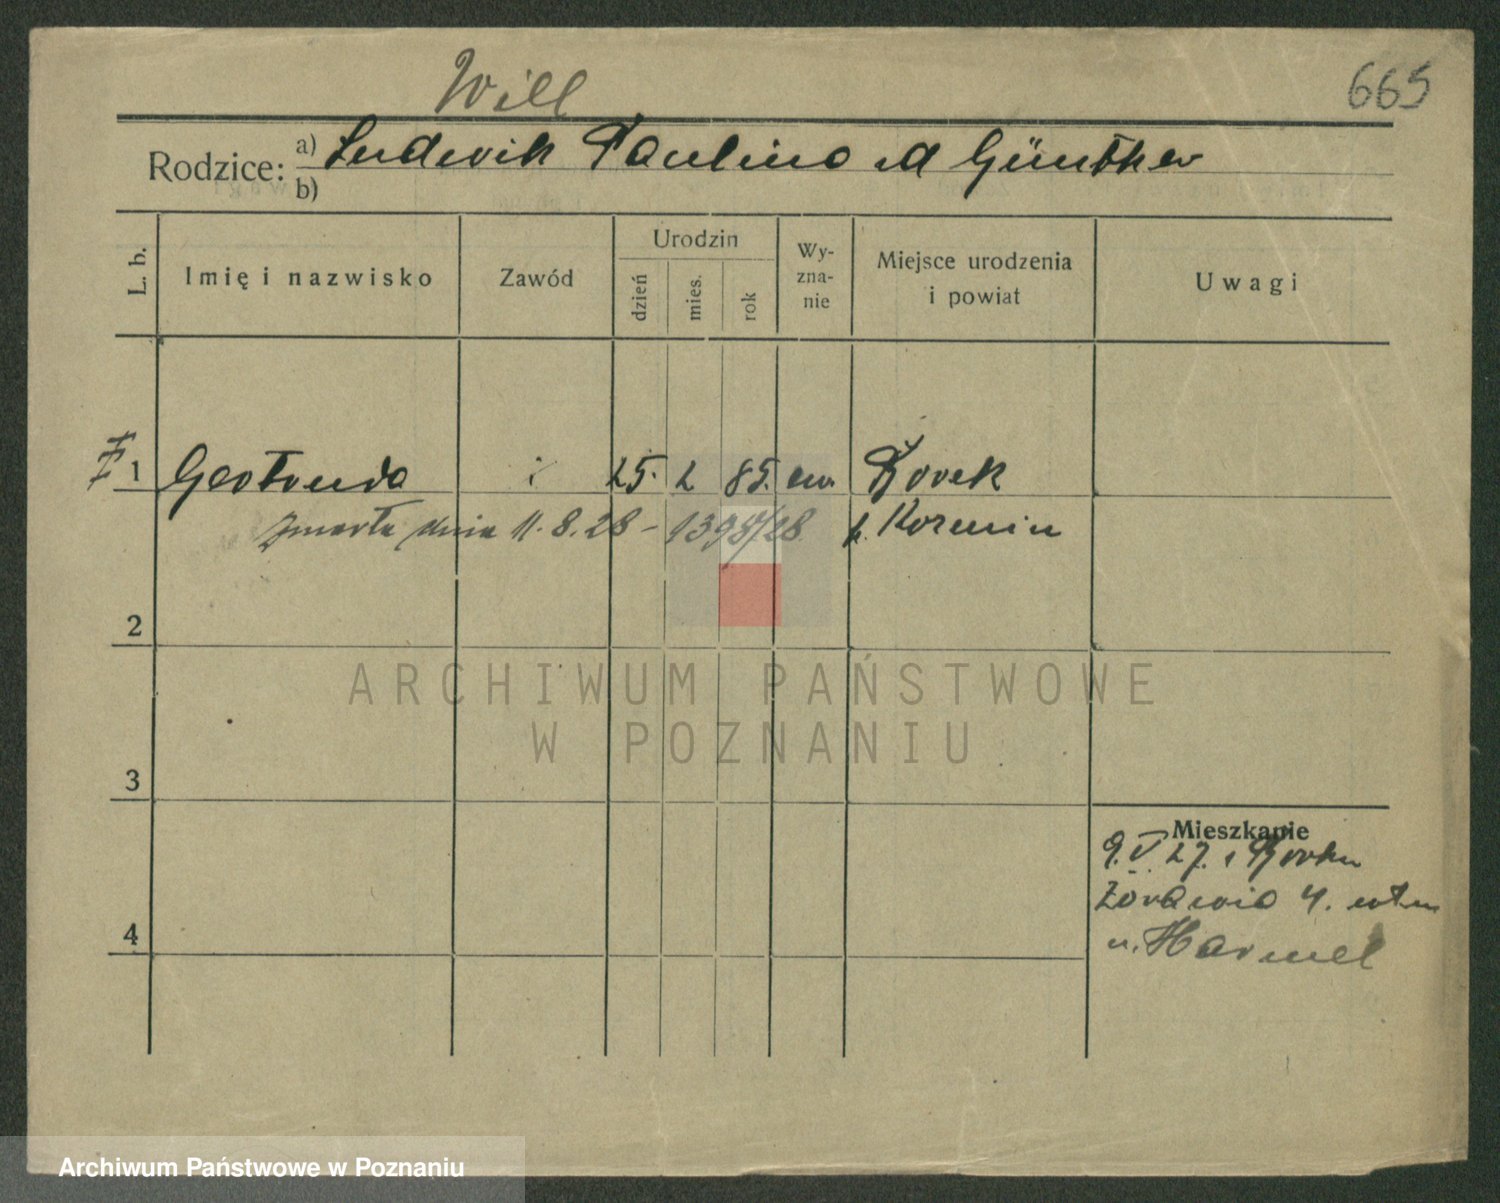 Will
665
Rodzice: a) Ludwik Paulina Günther
b)
L. b.
Imię i nazwisko
Zawód
Urodzin
dzień
mies.
rok
Wy-
zna-
nie
Miejsce urodzenia
i powiat
Uwagi
1 Gertruda 25. 2 85. ew. Borek
Zmarła dnia 11.8.28 - 1398/28 p. Kozmin
2
ARCHIWUM PAŃSTWOWE
W POZNANIU
3
Mieszkanie
9. V. 27. z Borku
Żórawia 4.
u. Harmel
4
Archiwum Państwowe w Poznaniu